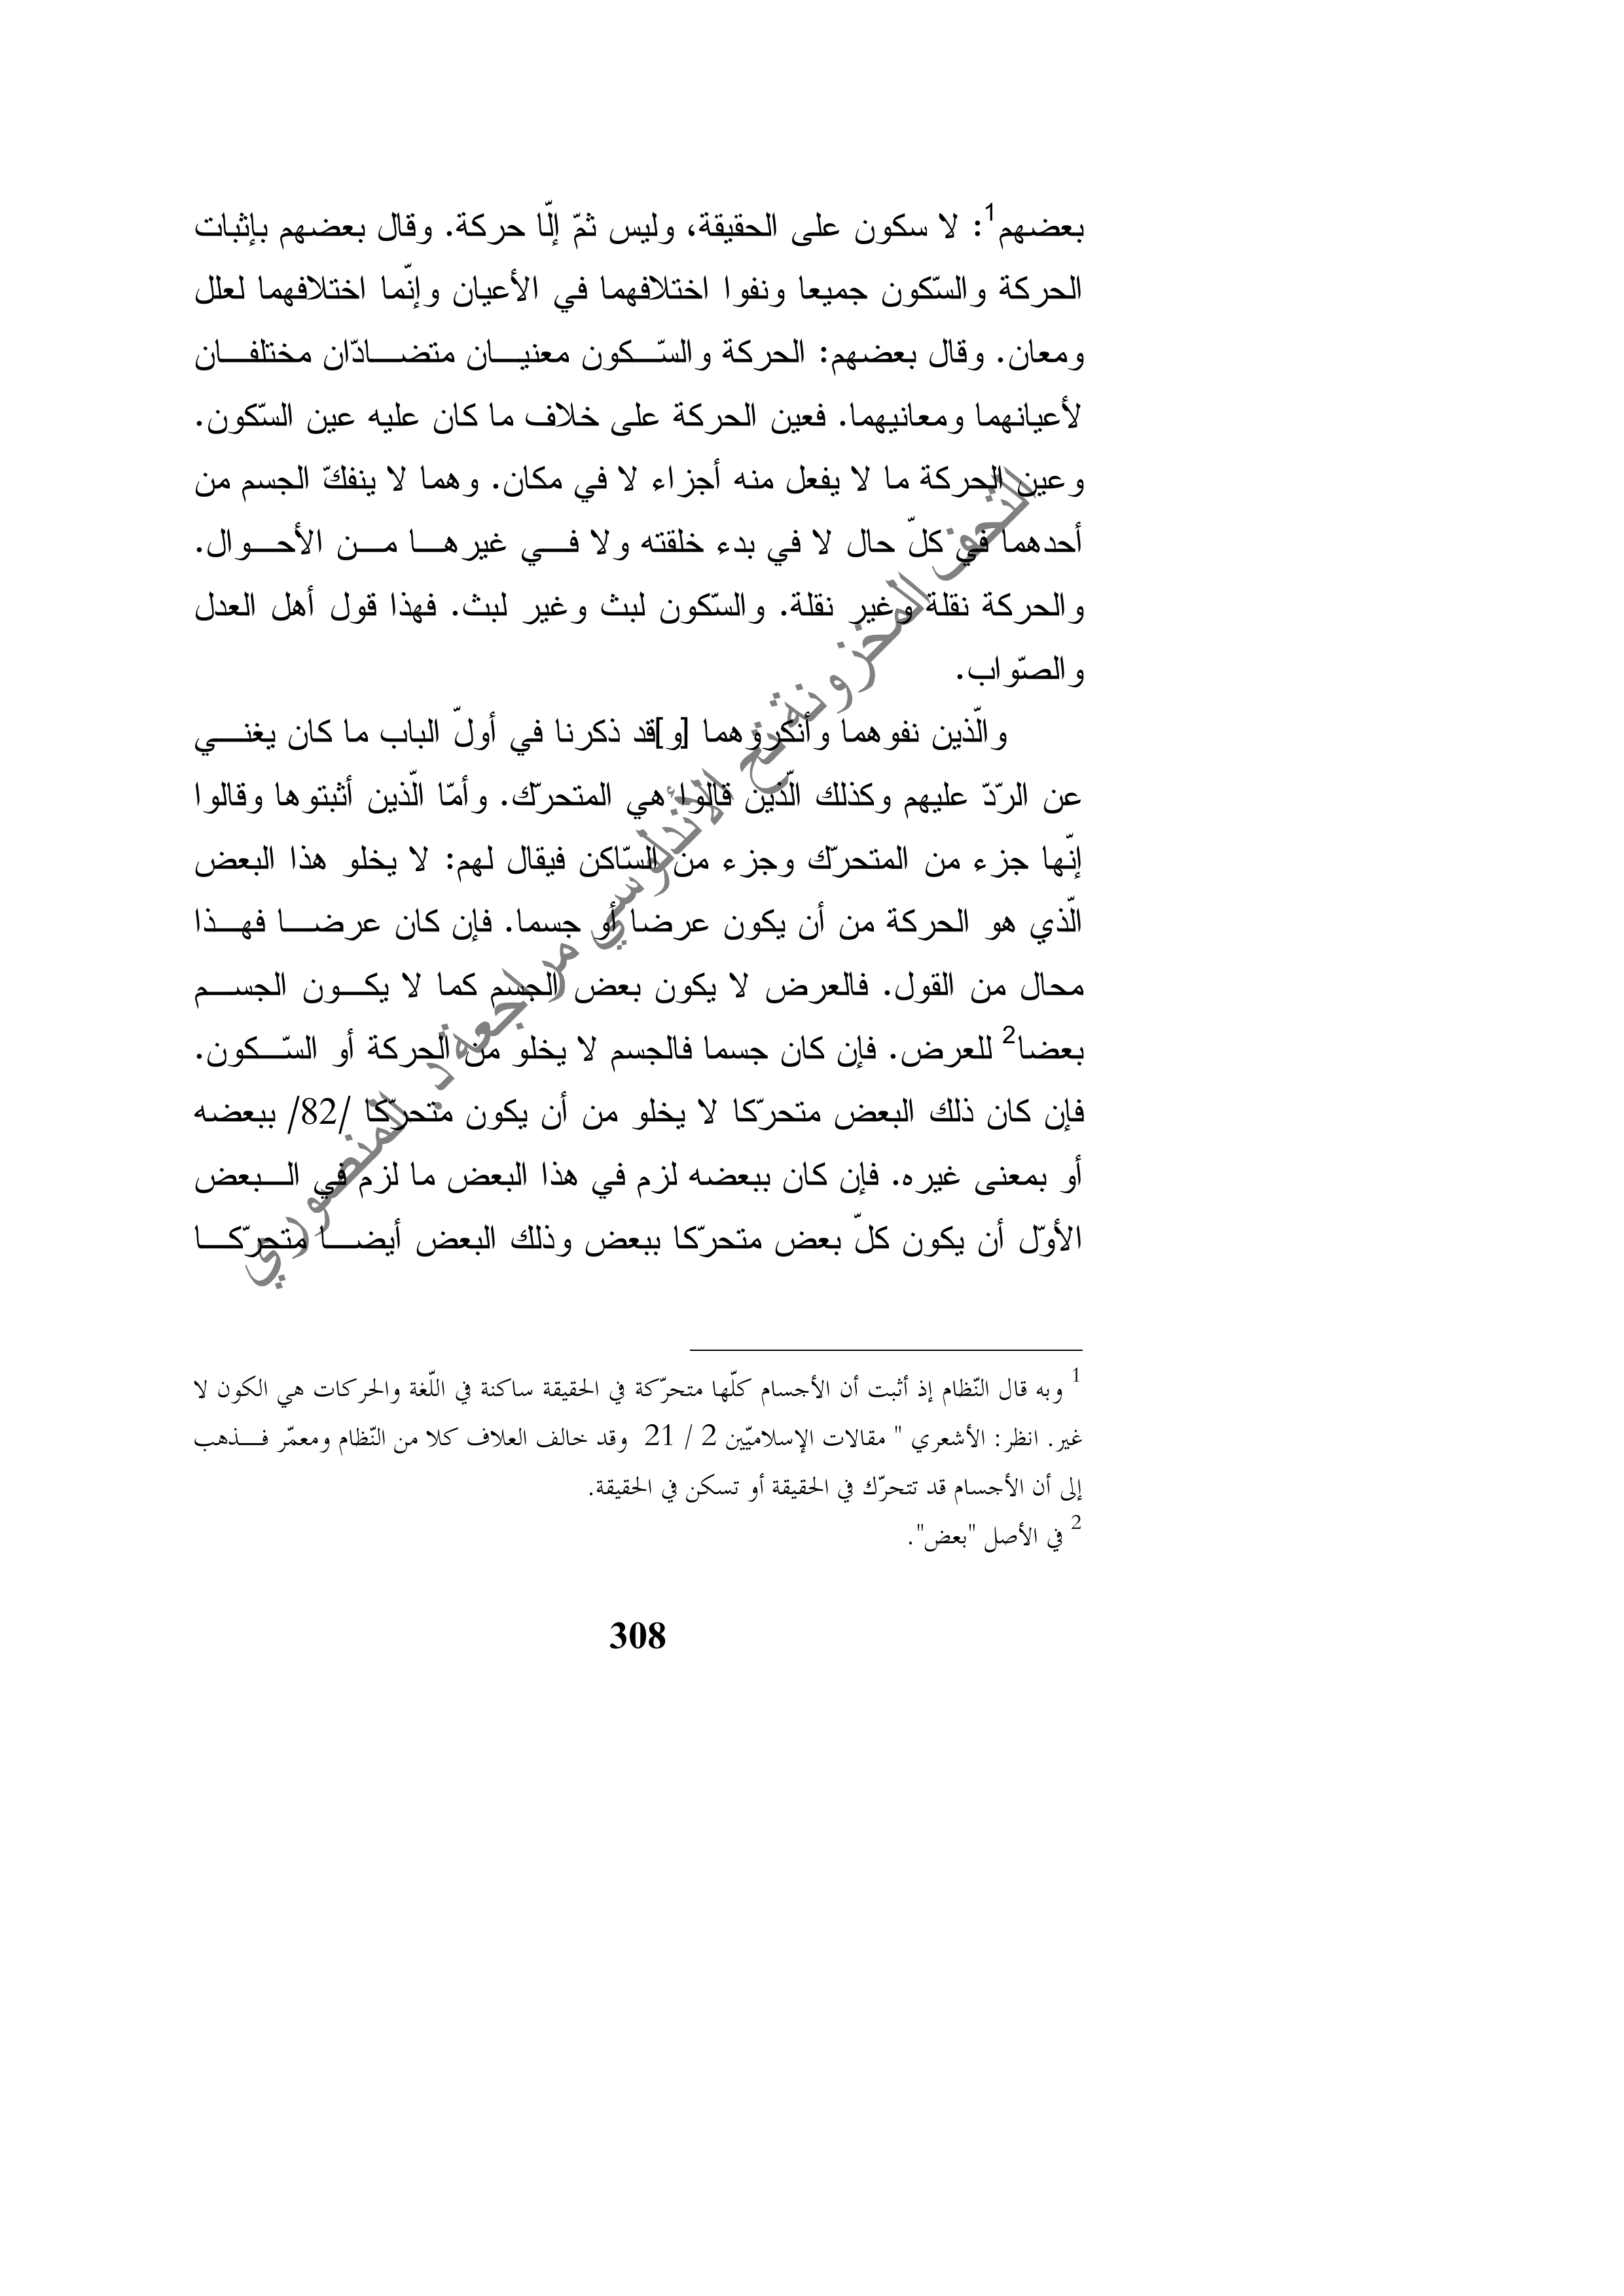 بعضهم1: لا سكون على الحقيقة، وليس ثمّ إلّا حركة. وقال بعضهم بإثبات
الحركة والسّكون جميعا ونفوا اختلافهما في الأعيان وإنّما اختلافهما لعلل
ومعان. وقال بعضهم: الحركة والسّكون معنيان متضادّان مختلفان
لأعيانهما ومعانيهما. فعين الحركة على خلاف ما كان عليه عين السّكون.
وعين الحركة ما لا يفعل منه أجزاء لا في مكان. وهما لا ينفكّ الجسم من
أحدهما في كلّ حال لا في بدء خلقته ولا في غيرها من الأحوال.
والحركة نقلة وغير نقلة. والسّكون لبث وغير لبث. فهذا قول أهل العدل
والصّواب.
والّذين نفوهما وأنكروهما [و]قد ذكرنا في أولّ الباب ما كان يغني
عن الرّدّ عليهم وكذلك الّذين قالوا هي المتحرّك. وأمّا الّذين أثبتوها وقالوا
إنّها جزء من المتحرّك وجزء من السّاكن فيقال لهم: لا يخلو هذا البعض
الّذي هو الحركة من أن يكون عرضا أو جسما. فإن كان عرضا فهذا
محال من القول. فالعرض لا يكون بعض الجسم كما لا يكون الجسم
بعضا2 للعرض. فإن كان جسما فالجسم لا يخلو من الحركة أو السّكون.
فإن كان ذلك البعض متحرّكا لا يخلو من أن يكون متحرّكا /82/ ببعضه
أو بمعنى غيره. فإن كان ببعضه لزم في هذا البعض ما لزم في البعض
الأوّل أن يكون كلّ بعض متحرّكا ببعض وذلك البعض أيضا متحرّكا
التحف المخزونة تح الأندلوسي مراجعة د. المنصوري
1 وبه قال النّظام إذ أثبت أن الأجسام كلّها متحرّكة في الحقيقة ساكنة في اللّغة والحركات هي الكون لا
غير. انظر: الأشعري " مقالات الإسلاميّين 2 / 21 وقد خالف العلاف كلا من النّظام ومعمّر فذهب
إلى أن الأجسام قد تتحرّك في الحقيقة أو تسكن في الحقيقة.
2 في الأصل "بعض".
308